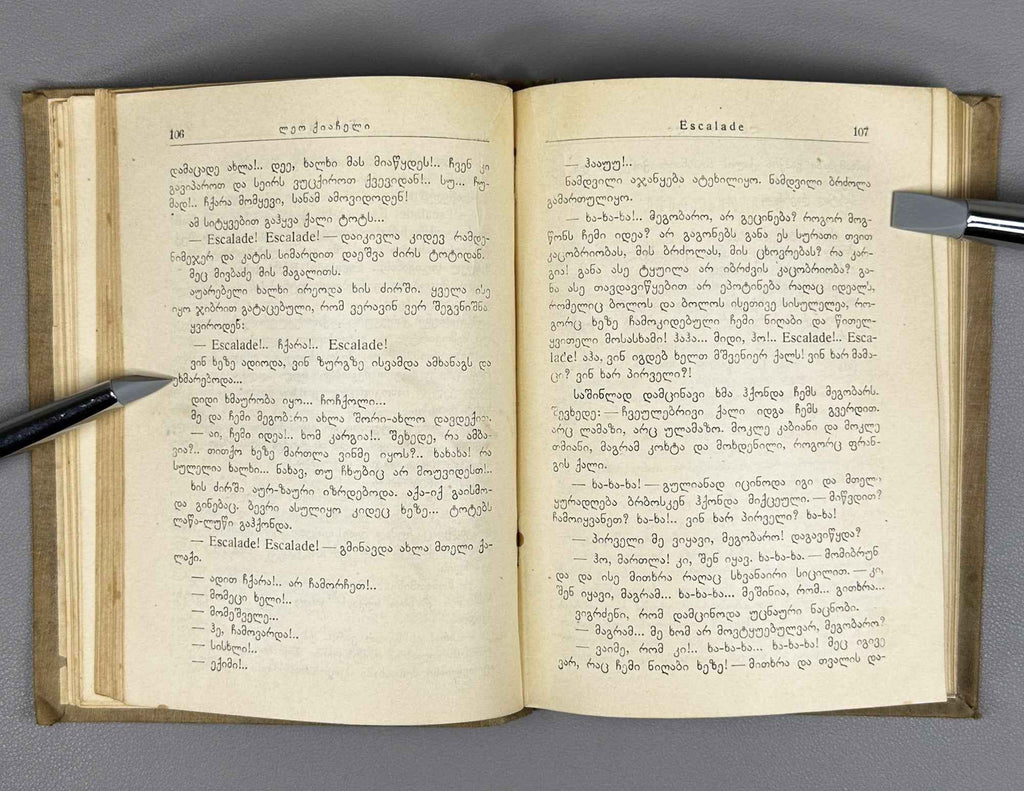 106
ლეო ქიაჩელი
დამაცადე ახლა!.. დეე, ხალხი მას მიაწყდეს!.. ჩვენ კი
გავიპაროთ და სეირს ვუცქიროთ ქვევიდან!.. სუ... ჩუ-
მად!.. ჩქარა მომყევი, სანამ ამოვიდოდენ!
ამ სიტყვებით გაჰყვა ქალი ტოტს...
— Escalade! Escalade! — დაიკივლა კიდევ რამდე-
ნიმეჯერ და კატის სიმარდით დაეშვა ძირს ტოტიდან.
მეც მივბაძე მის მაგალითს.
აუარებელი ხალხი ირეოდა ხის ძირში. ყველა ისე
იყო ჯიბრით გატაცებული, რომ ვერავინ ვერ შეგვნიშნა.
ყვიროდენ:
— Escalade!.. ჩქარა!.. Escalade!
ვინ ხეზე ადიოდა, ვინ ზურგზე ისვამდა ამხანაგს და
ეხმარებოდა...
დიდი ხმაურობა იყო... ჩოჩქოლი...
მე და ჩემი მეგობარი ახლა შორი-ახლო დავდექით.
— აი, ჩემი იდეა!.. ხომ კარგია!.. შეხედე, რა ამბა-
ვია?.. თითქო ხეზე მართლა ვინმე იყოს?.. ხახახა! რა
სულელია ხალხი... ნახავ, თუ ჩხუბიც არ მოუვიდესთ!..
ხის ძირში აურ-ზაური იზრდებოდა. აქა-იქ გაისმო-
და გინებაც. ბევრი ასულიყო კიდეც ხეზე... ტოტებს
ლაწა-ლუწი გაჰქონდა.
— Escalade! Escalade! — გმინავდა ახლა მთელი ქა-
ლაქი.
— ადით ჩქარა!.. არ ჩამორჩეთ!..
— მომეცი ხელი!..
— მომეშველე...
— ჰე, ჩამოვარდა!..
— სისხლი!..
— ექიმი!..
Escalade
107
— ჰააუუ!..
ნამდვილი აჯანყება ატეხილიყო. ნამდვილი ბრძოლა
გამართულიყო.
— ხა-ხა-ხა!.. მეგობარო, არ გეცინება? როგორ მოგ-
წონს ჩემი იდეა? არ გაგონებს განა ეს სურათი თვით
კაცობრიობას, მის ბრძოლას, მის ცხოვრებას? რა კარ-
გია! განა ასე ტყუილა არ იბრძვის კაცობრიობა? გა-
ნა ასე თავდავიწყებით არ ეპოტინება რაღაც იდეალს,
რომელიც ბოლოს და ბოლოს ისეთივე სისულელეა, რო-
გორც ხეზე ჩამოკიდებული ჩემი ნიღაბი და წითელ-
ყვითელი მოსასხამი! ჰაჰა... მიდი, ჰო!.. Escalade!.. Esca-
lade! აჰა, ვინ იგდებ ხელთ მშვენიერ ქალს! ვინ ხარ მამა-
ცი? ვინ ხარ პირველი?!
საშინლად დამცინავი ხმა ჰქონდა ჩემს მეგობარს.
შევხედე: — ჩვეულებრივი ქალი იდგა ჩემს გვერდით.
არც ლამაზი, არც ულამაზო. მოკლე კაბიანი და მოკლე
თმიანი, მაგრამ კოხტა და მოხდენილი, როგორც ფრან-
გის ქალი.
— ხა-ხა-ხა! — გულიანად იცინოდა იგი და მთელი
ყურადღება ბრბოსკენ ჰქონდა მიქცეული. — მიწვდით?
ჩამოიყვანეთ? ხა-ხა!.. ვინ ხარ პირველი? ხა-ხა!
— პირველი მე ვიყავი, მეგობარო! დაგავიწყდა?
— ჰო, მართლა! კი, შენ იყავ. ხა-ხა-ხა. — მომიბრუნ-
და და ისე მითხრა რაღაც სხვანაირი სიცილით. — კი,
შენ იყავი, მაგრამ... ხა-ხა-ხა... მეშინია, რომ... გითხრა...
ვიგრძენი, რომ დამცინოდა უცნაური ნაცნობი.
— მაგრამ... მე ხომ არ მოვტყუებულვარ, მეგობარო?
— ვაიმე, რომ კი!.. ხა-ხა-ხა... ხა-ხა-ხა! მეც იგივე
ვარ, რაც ჩემი ნიღაბი ხეზე! — მითხრა და თვალის და-